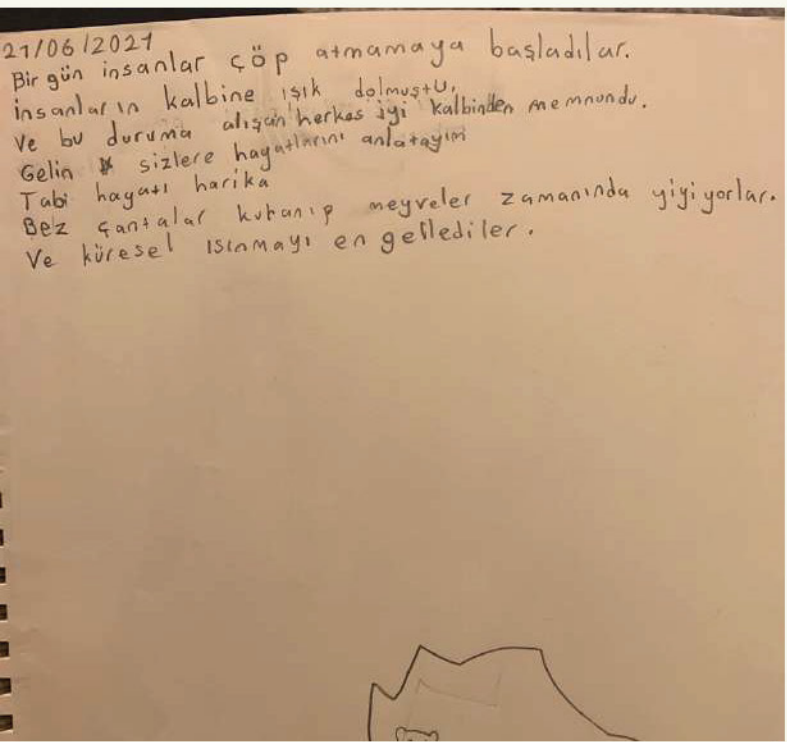 21/06/2021
Bir gün insanlar çöp atmamaya başladılar.
insanların kalbine ışık dolmuştu,
Ve bu duruma alışan herkes iyi kalbinden memnundu.
Gelin sizlere hayatlarını anlatayım
Tabi hayatı harika
Bez çantalar kullanıp meyveler zamanında yiyiyorlar.
Ve küresel ısınmayı engellediler.